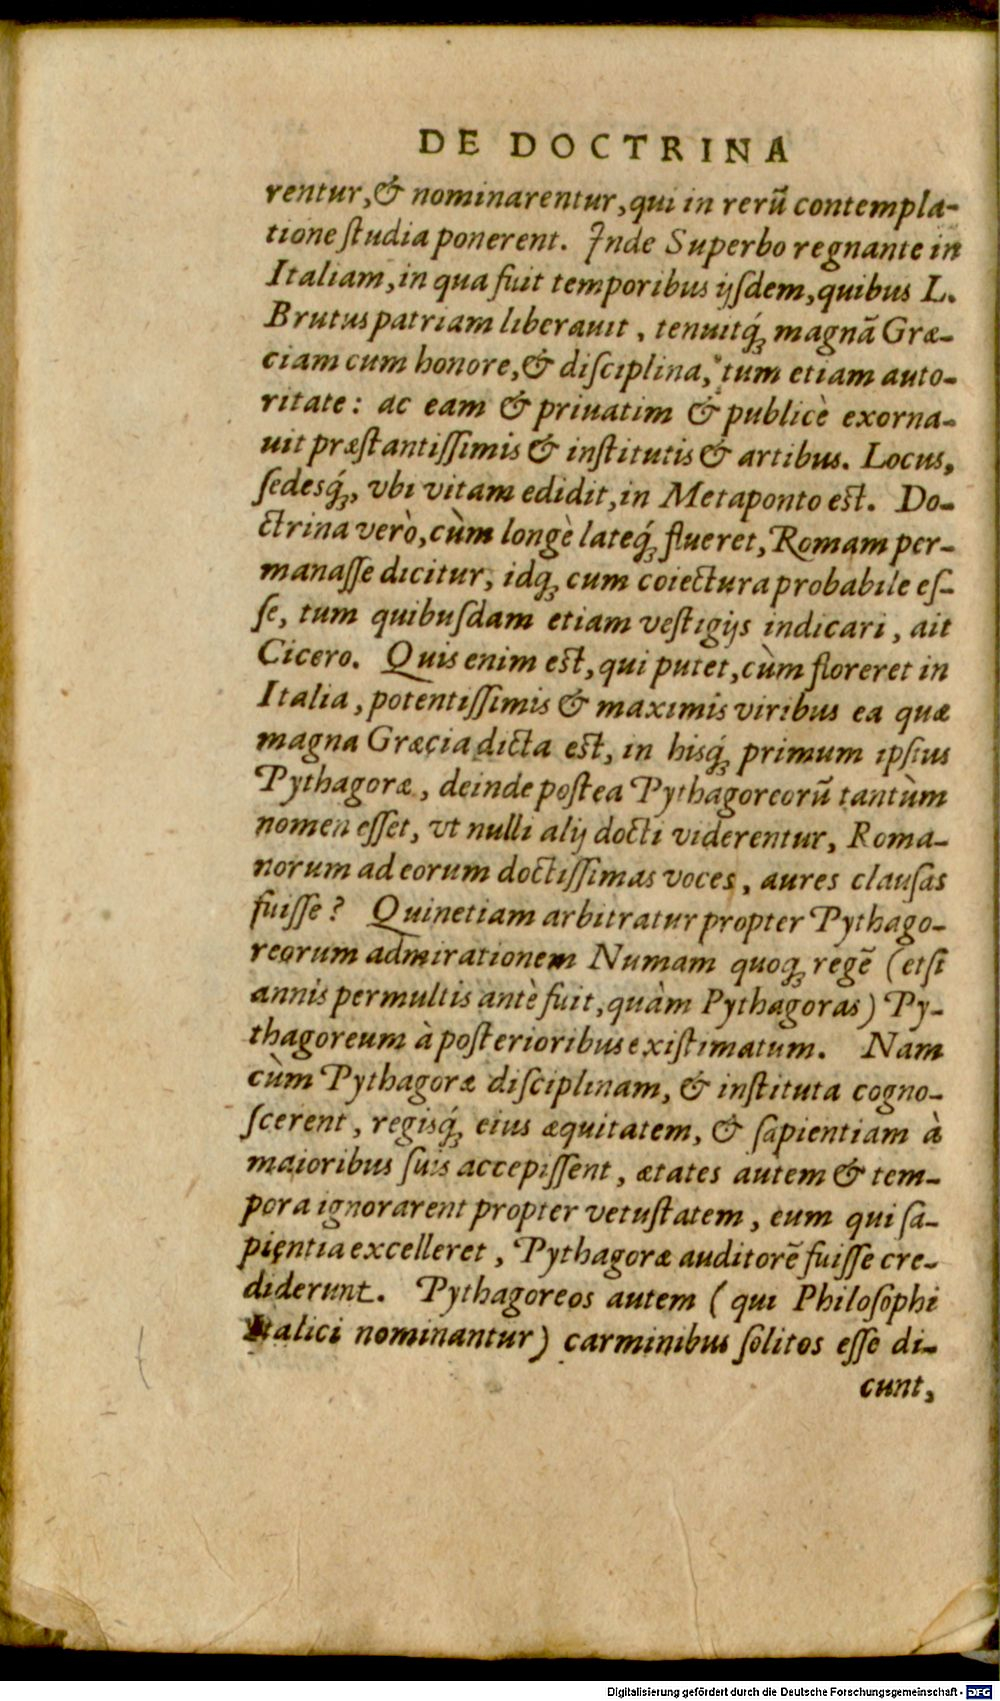 DE DOCTRINA
rentur, & nominarentur, qui in rerũ contempla-
tione ſtudia ponerent. Inde Superbo regnante in
Italiam, in qua fuit temporibus ijſdem, quibus L.
Brutus patriam liberauit, tenuitq́; magnã Græ-
ciam cum honore, & diſciplina, tum etiam auto-
ritate: ac eam & priuatim & publicè exorna-
uit præſtantiſſimis & inſtitutis & artibus. Locus,
ſedesq́;, vbi vitam edidit, in Metaponto eſt. Do-
ctrina verò, cùm longè lateq́; flueret, Romam per-
manaſſe dicitur, idq; cum coiectura probabile eſ-
ſe, tum quibuſdam etiam veſtigijs indicari, ait
Cicero. Quis enim eſt, qui putet, cùm floreret in
Italia, potentiſſimis & maximis viribus ea quæ
magna Græcia dicta eſt, in hisq́; primum ipſius
Pythagoræ, deinde poſtea Pythagoreorũ tantùm
nomen eſſet, vt nulli alij docti viderentur, Roma-
norum ad eorum doctiſſimas voces, aures clauſas
fuiſſe? Quinetiam arbitratur propter Pythago-
reorum admirationem Numam quoq; regẽ (etſi
annis permultis antè fuit, quàm Pythagoras) Py-
thagoreum à poſterioribus exiſtimatum. Nam
cùm Pythagoræ diſciplinam, & inſtituta cogno-
ſcerent, regisq́; eius æquitatem, & ſapientiam à
maioribus ſuis accepiſſent, ætates autem & tem-
pora ignorarent propter vetuſtatem, eum qui ſa-
pientia excelleret, Pythagoræ auditorẽ fuiſſe cre-
diderunt. Pythagoreos autem (qui Philoſophi
Italici nominantur) carminibus ſolitos eſſe di-
cunt,
Digitalisierung gefördert durch die Deutsche Forschungsgemeinschaft - DFG